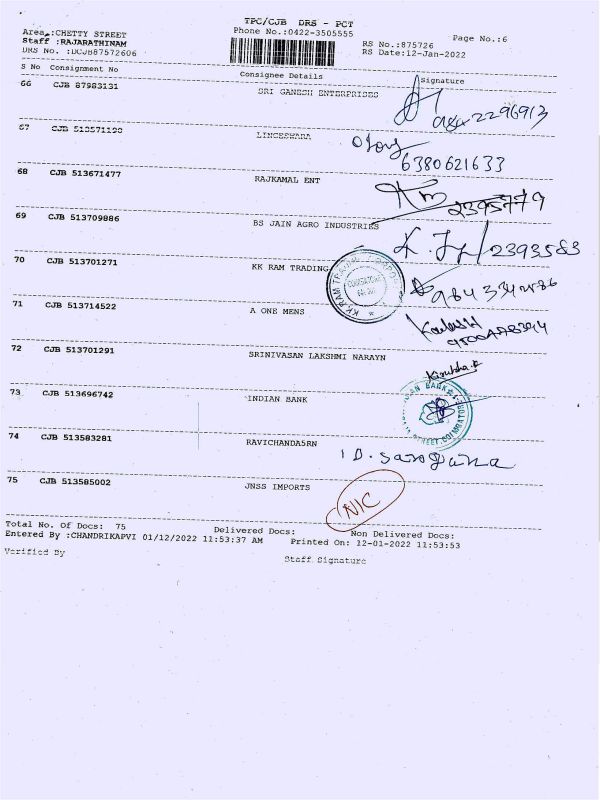 TPC/CJB DRS - PCT
Area :CHETTY STREET
Phone No.:0422-3505555
Page No.:6
Staff :RAJARATHINAM
RS No.:875726
DRS No. :DCJB87572606
RS Date:12-Jan-2022
S No Consignment No Consignee Details Signature
66 CJB 87983131 SRI GANESH ENTERPRISES
2296913
67 CJB 513571190 LINGESWARA
6380621633
68 CJB 513671477 RAJKAMAL ENT
2395779
69 CJB 513709886 BS JAIN AGRO INDUSTRIES
2393583
70 CJB 513701271 KK RAM TRADING
71 CJB 513714522 A ONE MENS
72 CJB 513701291 SRINIVASAN LAKSHMI NARAYN
73 CJB 513696742 INDIAN BANK
74 CJB 513583281 RAVICHANDASRN
75 CJB 513585002 JNSS IMPORTS
NIC
Total No. Of Docs: 75 Delivered Docs: Non Delivered Docs:
Entered By :CHANDRIKAPVI 01/12/2022 11:53:37 AM Printed On: 12-01-2022 11:53:53
Verified By Staff Signature